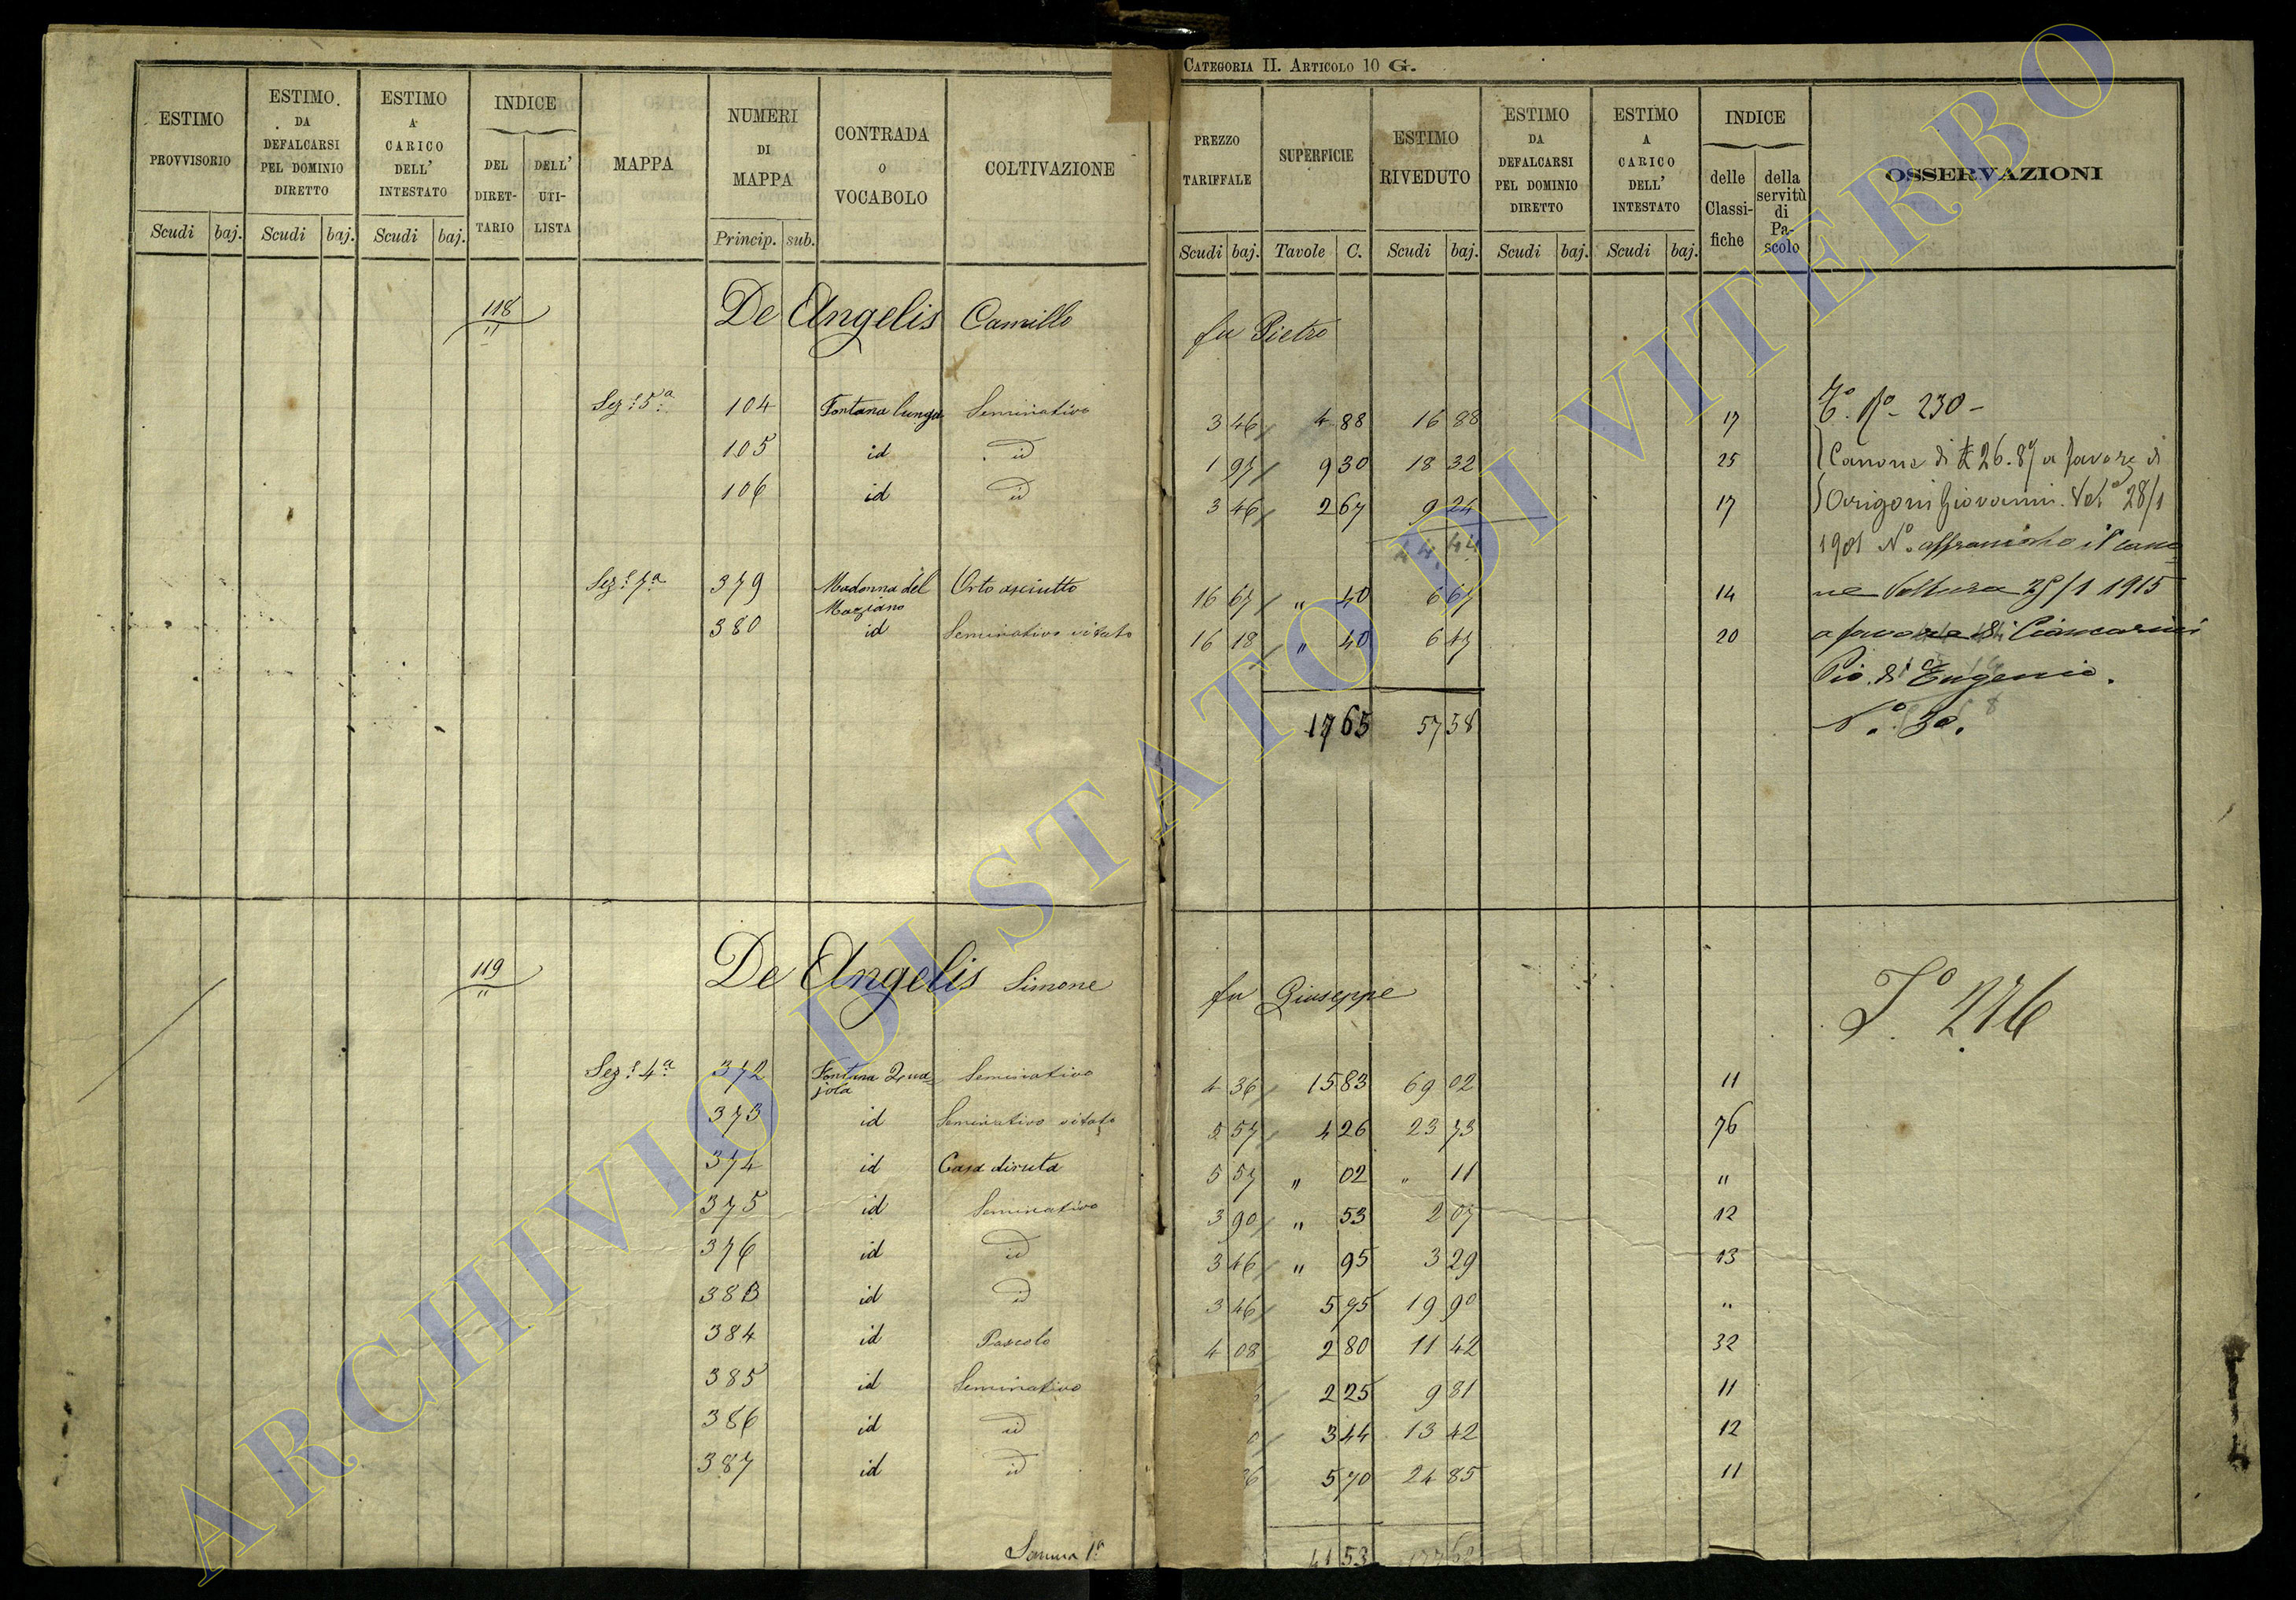 CATEGORIA II. ARTICOLO 10 G.
ESTIMO PROVVISORIO Scudi baj.
ESTIMO DA DEFALCARSI PEL DOMINIO DIRETTO Scudi baj.
ESTIMO A CARICO DELL' INTESTATO Scudi baj.
INDICE DEL DIRET-TARIO DELL' UTI-LISTA
MAPPA
NUMERI DI MAPPA Princip. sub.
CONTRADA o VOCABOLO
COLTIVAZIONE
PREZZO TARIFFALE Scudi baj.
SUPERFICIE Tavole C.
ESTIMO RIVEDUTO Scudi baj.
ESTIMO DA DEFALCARSI PEL DOMINIO DIRETTO Scudi baj.
ESTIMO A CARICO DELL' INTESTATO Scudi baj.
INDICE delle Classi-fiche della servitù di Pa-scolo
OSSERVAZIONI
118 De Angelis Camillo fu Pietro
Sez. 5a 104 Fontana lunga Seminativo 3 46 4 88 16 88 17
105 id id 1 97 9 30 18 32 25
106 id id 3 46 2 67 9 24 17
44 44
Sez. 7a 379 Madonna del Orto asciutto 16 67 " 40 6 67 14
380 id Seminativo vitato 16 18 " 40 6 47 20
17 65 57 58
230
Canone di 26.87 a favore di
Arrigoni Giovanni. Vol. 28/1
1901 No. affrancato il cano
ne Voltura 1 1915
a favore di Ciancarini
Pio di Eugenio.
No. 30.
119 De Angelis Simone fu Giuseppe
To 276
Sez. 4a 372 Fontana Quajola Seminativo 4 36 15 83 69 02 11
373 id Seminativo vitato 5 57 4 26 23 73 76
374 id Casa diruta 5 57 " 02 " 11 "
375 id Seminativo 3 90 " 53 2 07 12
376 id id 3 46 " 95 3 29 13
383 id id 3 46 5 75 19 90 "
384 id Pascolo 4 08 2 80 11 42 32
385 id Seminativo 2 25 9 81 11
386 id id 3 44 13 42 12
387 id id 5 70 24 85 11
Somma 1a 41 53
ARCHIVIO DI STATO DI VITERBO